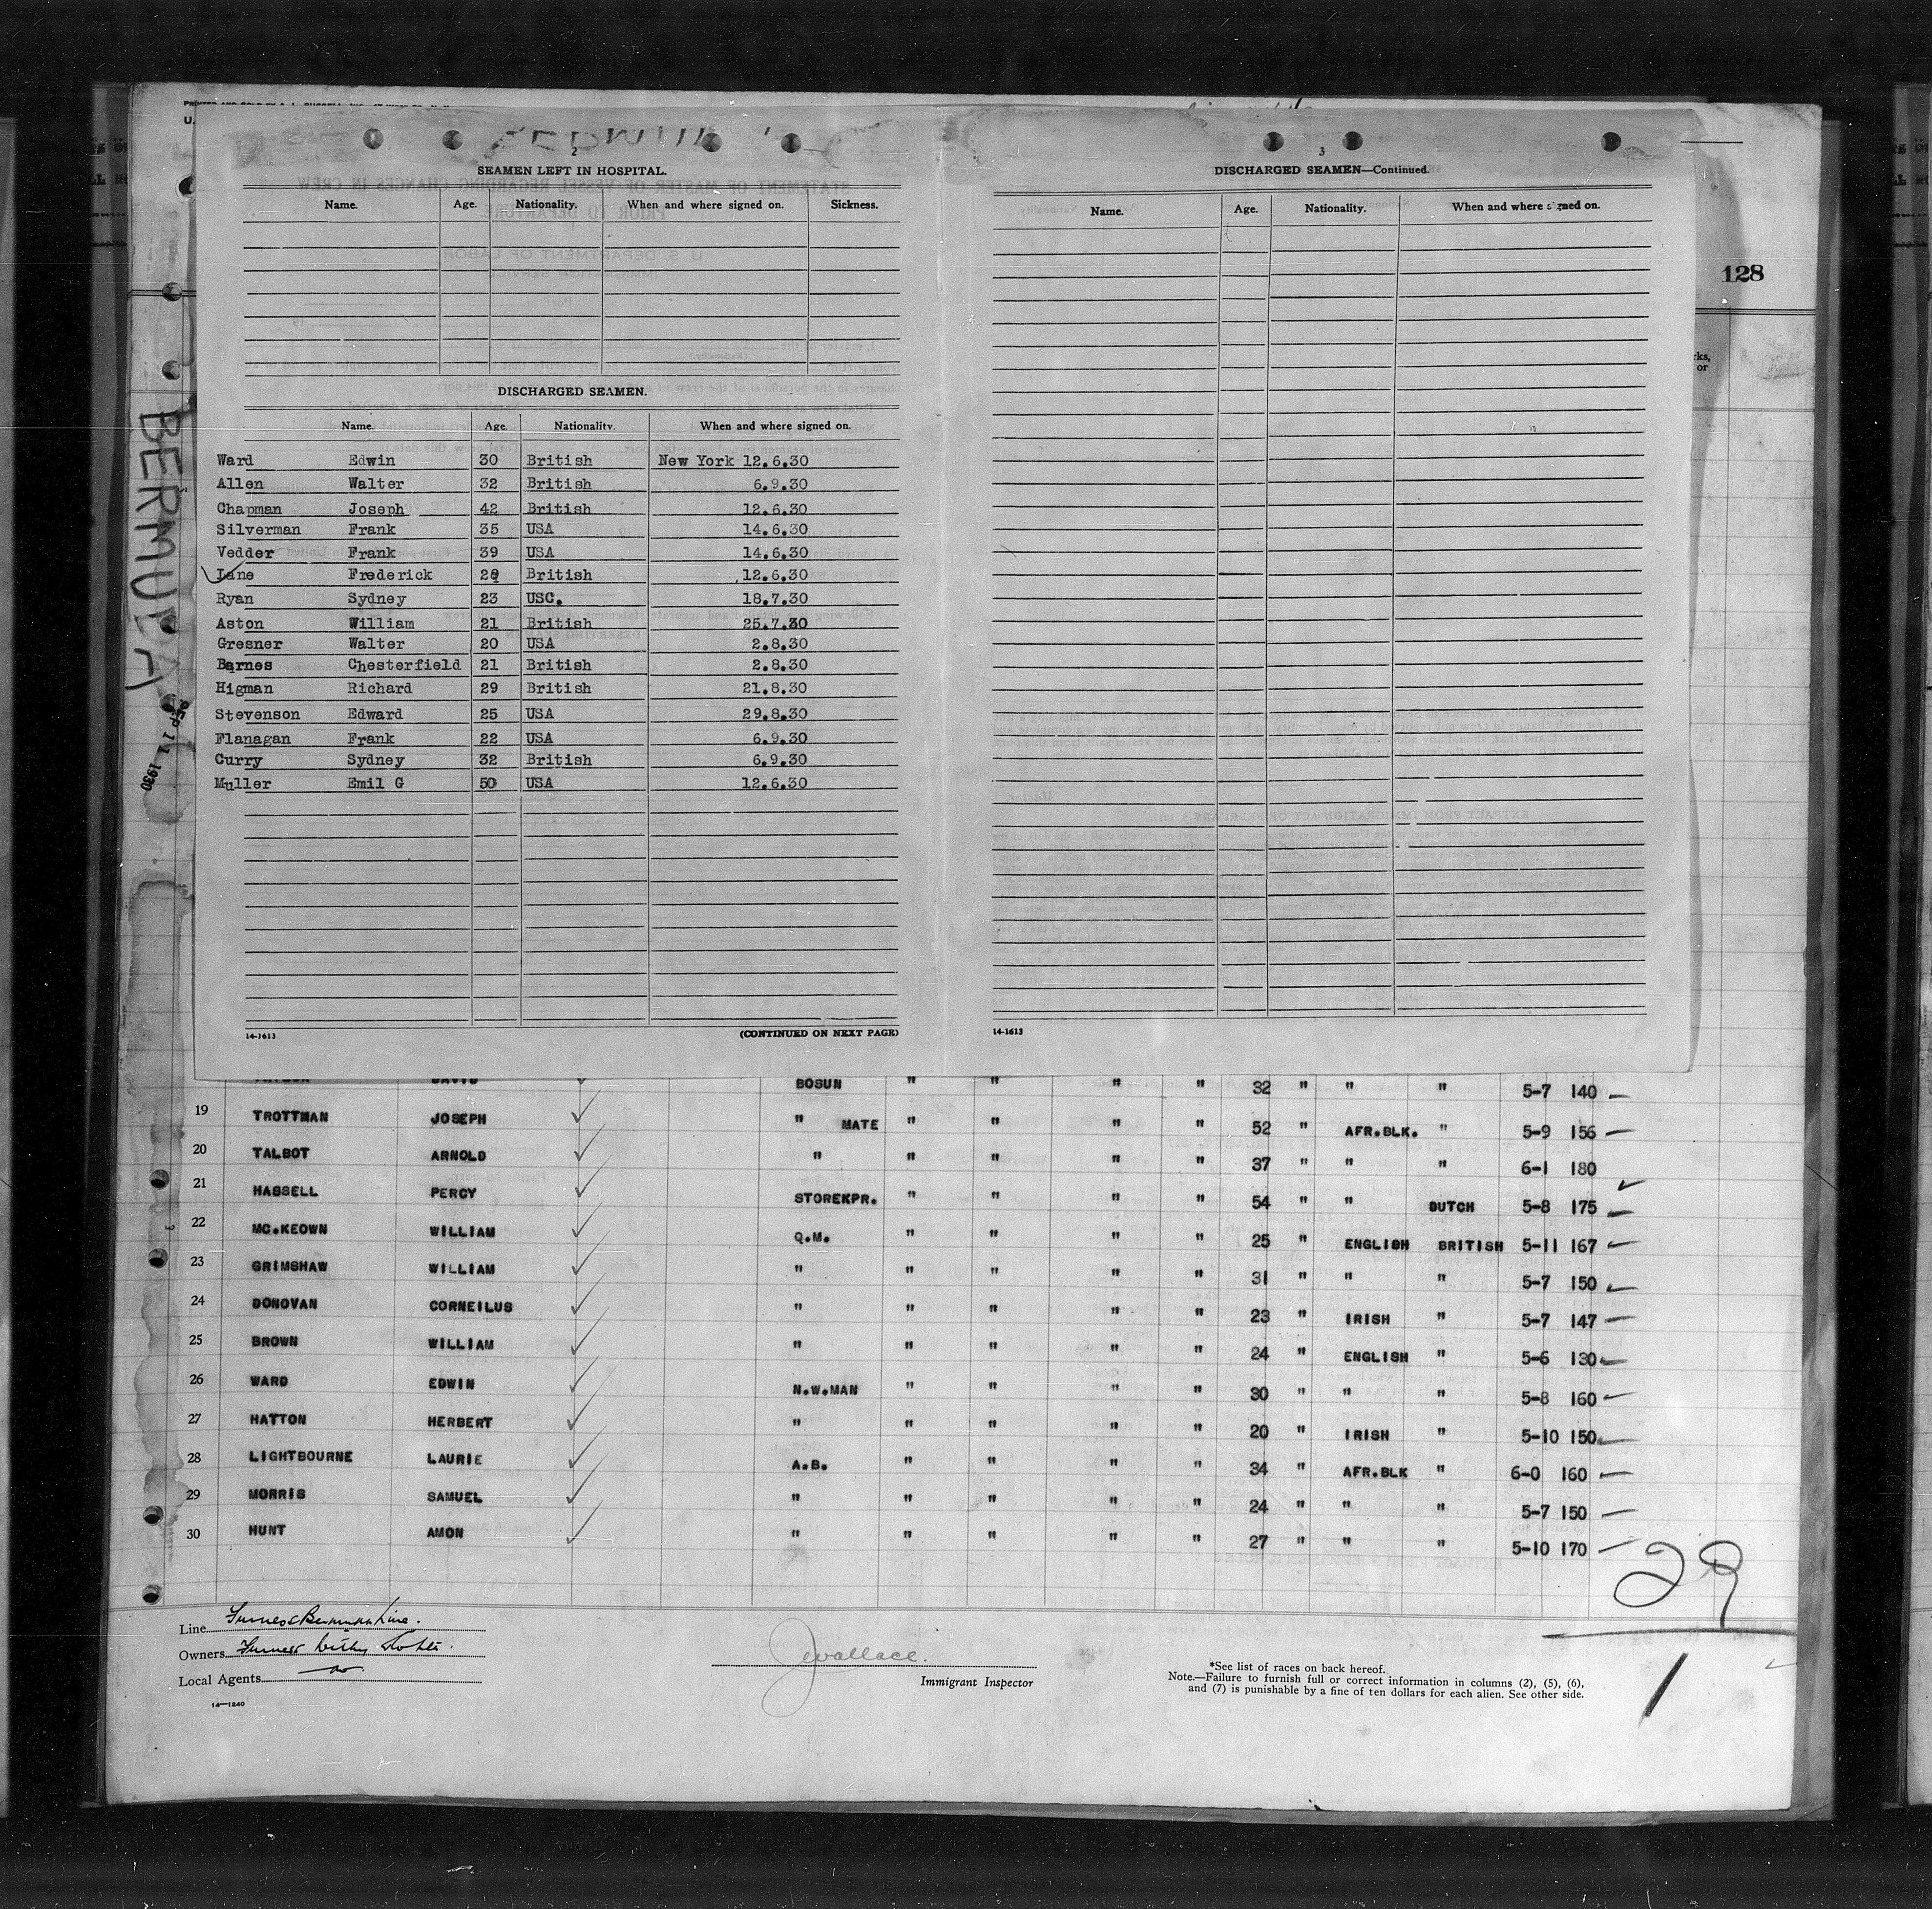 U.
128
rks,
or
BERMUDA
SEP 11 1930
2
SEAMEN LEFT IN HOSPITAL.
Name. Age. Nationality. When and where signed on. Sickness.
DISCHARGED SEAMEN.
Name. Age. Nationality. When and where signed on.
Ward Edwin 30 British New York 12.6.30
Allen Walter 32 British 6.9.30
Chapman Joseph 42 British 12.6.30
Silverman Frank 35 USA 14.6.30
Vedder Frank 39 USA 14.6.30
Lane Frederick British 12.6.30
Ryan Sydney 23 USC. 18.7.30
Aston William 21 British 25.7.30
Gresner Walter 20 USA 2.8.30
Barnes Chesterfield 21 British 2.8.30
Higman Richard 29 British 21.8.30
Stevenson Edward 25 USA 29.8.30
Flanagan Frank 22 USA 6.9.30
Curry Sydney 32 British 6.9.30
Muller Emil G 50 USA 12.6.30
14-1613 (CONTINUED ON NEXT PAGE)
3
DISCHARGED SEAMEN—Continued.
Name. Age. Nationality. When and where signed on.
14-1613
DAVID BOSUN " " " " 32 " " " 5-7 140
19 TROTTMAN JOSEPH " MATE " " " " 52 " AFR.BLK. " 5-9 156
20 TALBOT ARNOLD " " " " " 37 " " " 6-1 180
21 HASSELL PERCY STOREKPR. " " " " 54 " " DUTCH 5-8 175
22 MC.KEOWN WILLIAM Q.M. " " " " 25 " ENGLISH BRITISH 5-11 167
23 GRIMSHAW WILLIAM " " " " " 31 " " " 5-7 150
24 DONOVAN CORNEILUS " " " " " 23 " IRISH " 5-7 147
25 BROWN WILLIAM " " " " " 24 " ENGLISH " 5-6 130
26 WARD EDWIN N.W.MAN " " " " 30 " " " 5-8 160
27 HATTON HERBERT " " " " " 20 " IRISH " 5-10 150
28 LIGHTBOURNE LAURIE A.B. " " " " 34 " AFR.BLK " 6-0 160
29 MORRIS SAMUEL " " " " " 24 " " " 5-7 150
30 HUNT AMON " " " " " 27 " " " 5-10 170
29
1
Line Furness Bermuda Line.
Owners Furness Withy
Local Agents
14—1240
JWallace.
Immigrant Inspector
*See list of races on back hereof.
Note.—Failure to furnish full or correct information in columns (2), (5), (6),
and (7) is punishable by a fine of ten dollars for each alien. See other side.